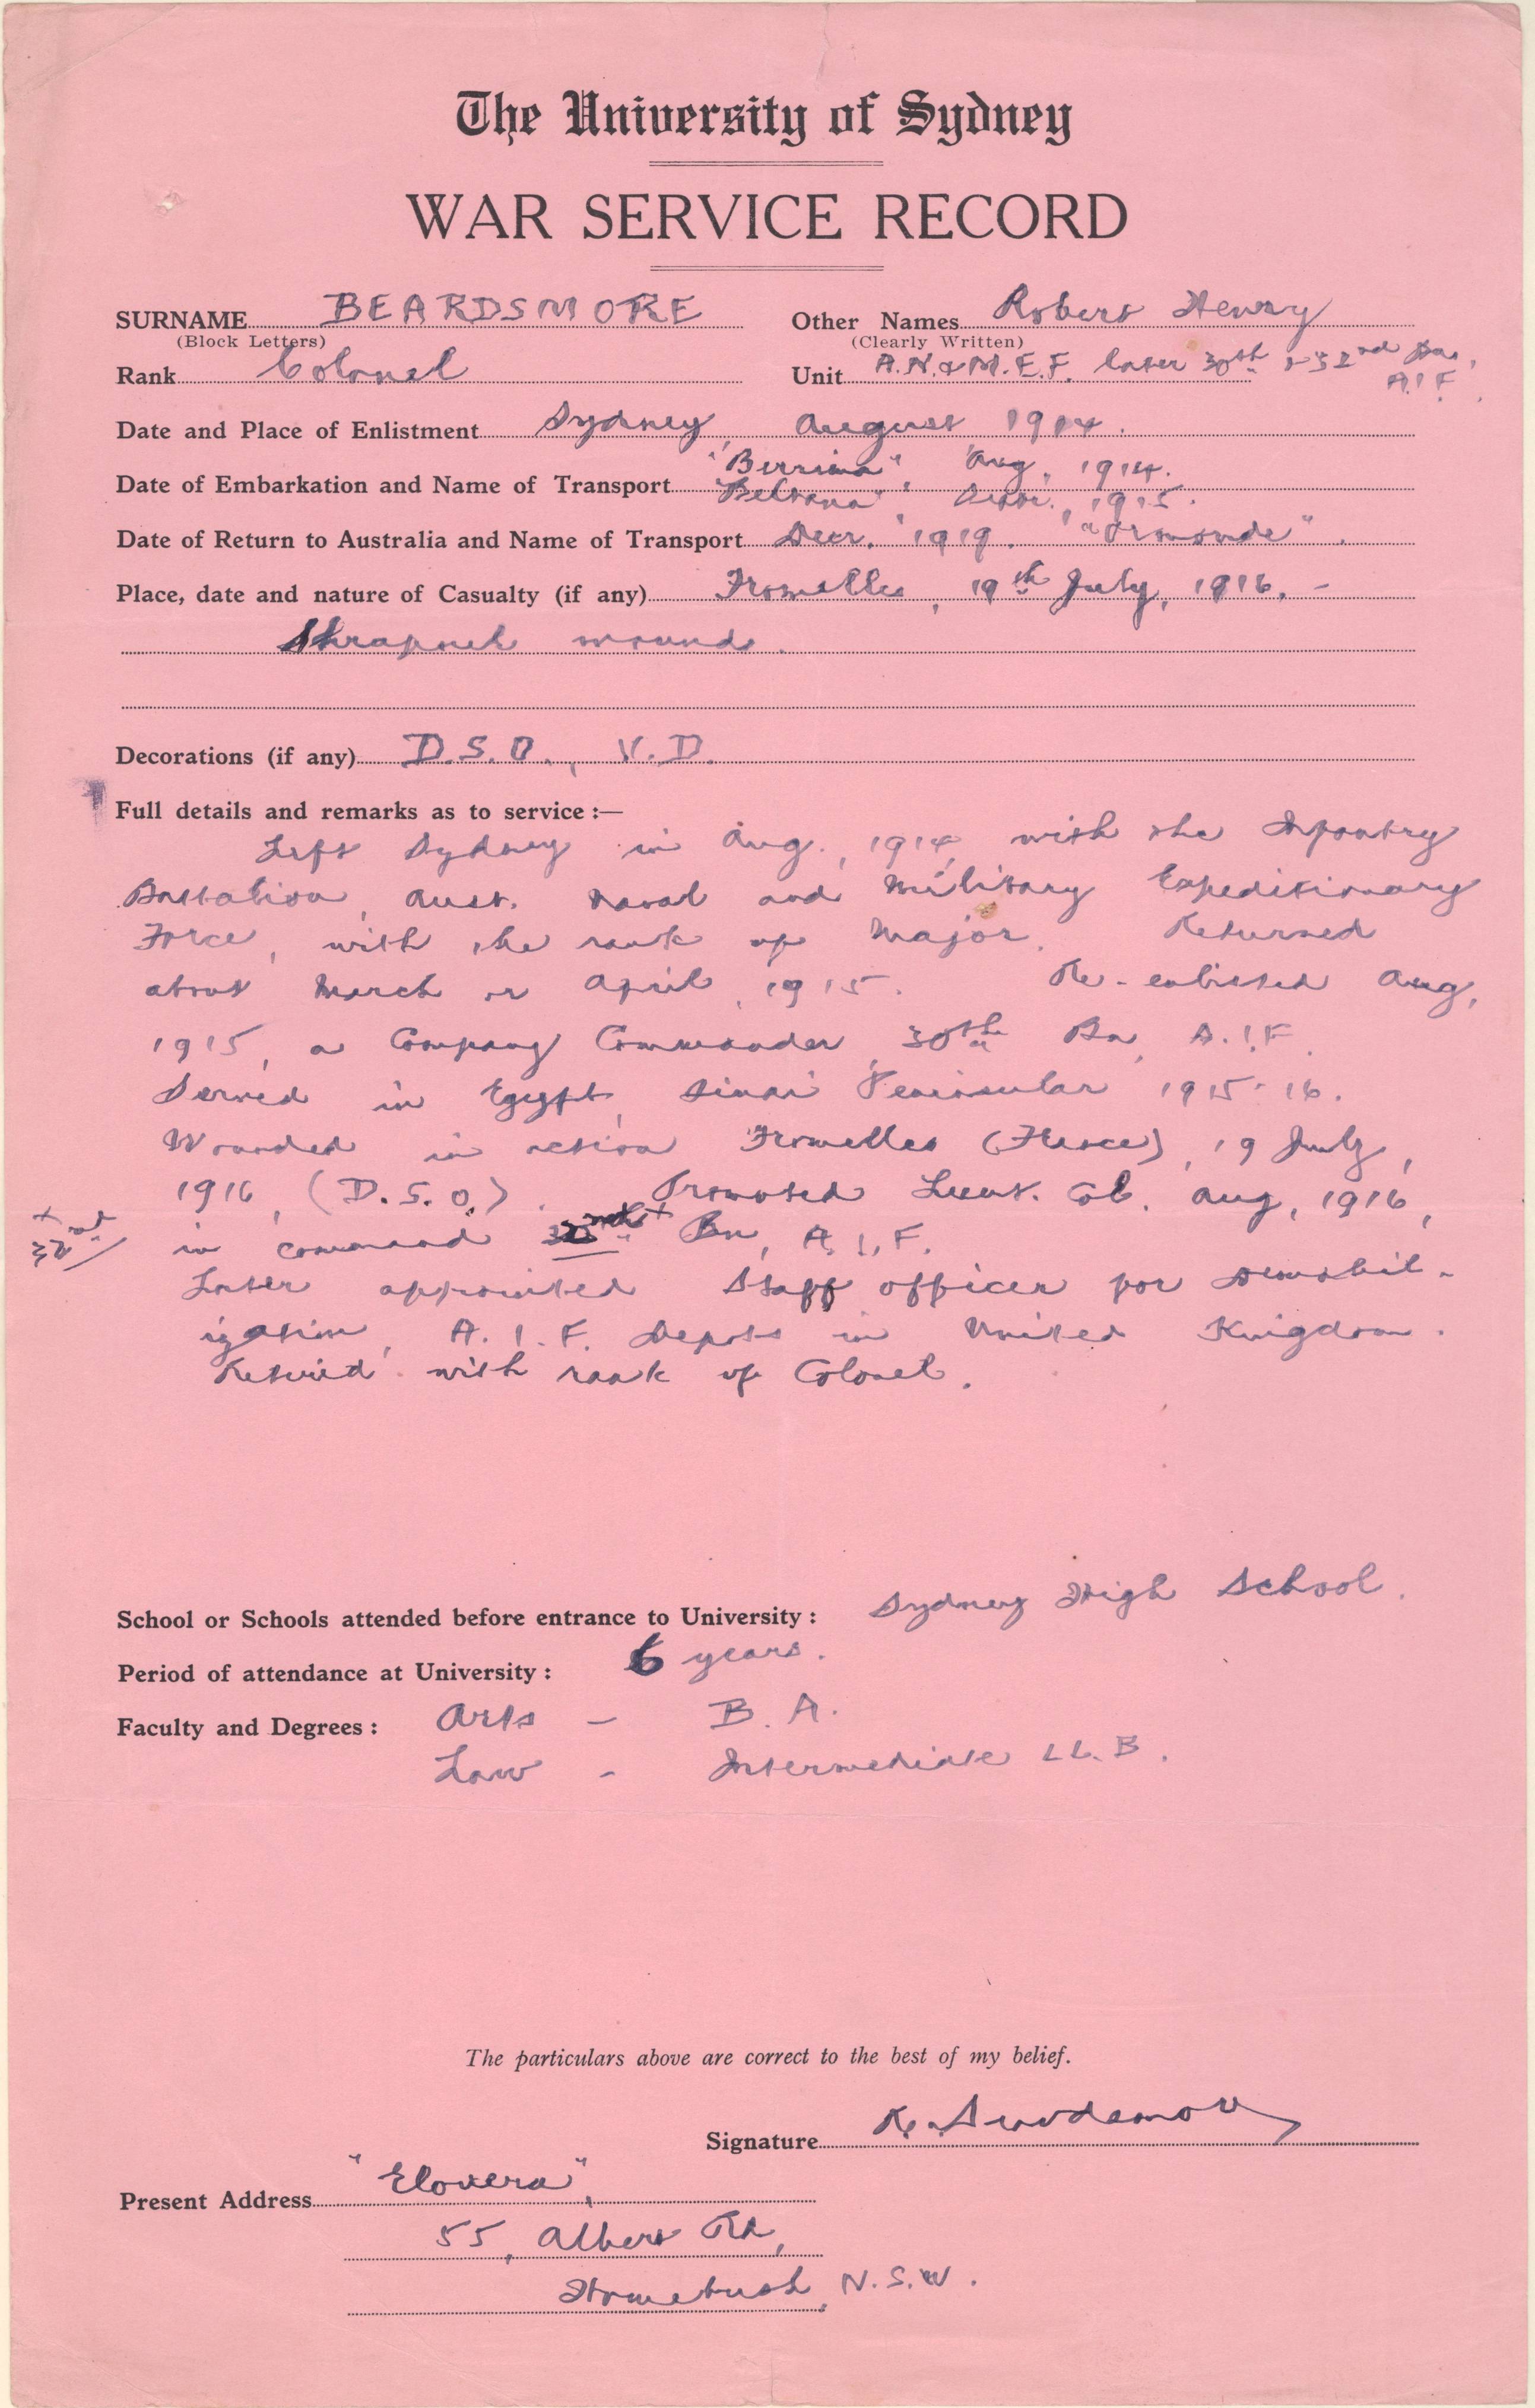 The University of Sydney
WAR SERVICE RECORD
SURNAME BEARDSMORE Other Names Robert Henry
(Block Letters) (Clearly Written)
Rank Colonel Unit A.N.&M.E.F. later 30th & 32nd Bns,
A.I.F.
Date and Place of Enlistment Sydney, August 1914.
"Berrima", Aug, 1914.
Date of Embarkation and Name of Transport "Beltana",  1915.
Date of Return to Australia and Name of Transport Decr. 1919. "Ormonde".
Place, date and nature of Casualty (if any) Fromelles, 19th July, 1916, -
Shrapnel wounds.
Decorations (if any) D.S.O., V.D.
Full details and remarks as to service :—
Left Sydney in Aug., 1914, with the Infantry
Battalion, Aust. Naval and Military Expeditionary
Force, with the rank of Major. Returned
about March or April, 1915. Re-enlisted Aug,
1915, a Company Commander, 30th Bn, A.I.F.
Served in Egypt, Sinai Peninsular 1915-16.
Wounded in action Fromelles (France), 19 July,
1916, (D.S.O.). Promoted Lieut. Col. Aug, 1916,
in command + Bn, A.I.F.
+ 32nd/
Later appointed Staff officer for demobil-
ization, A.I.F. Depots in United Kingdom.
Retired with rank of Colonel.
School or Schools attended before entrance to University : Sydney High School.
Period of attendance at University : 6 years.
Faculty and Degrees : Arts - B.A.
Law - Intermediate LL.B.
The particulars above are correct to the best of my belief.
Signature R. Beardsmore
Present Address "Elouera",
55, Albert Rd,
Homebush, N.S.W.